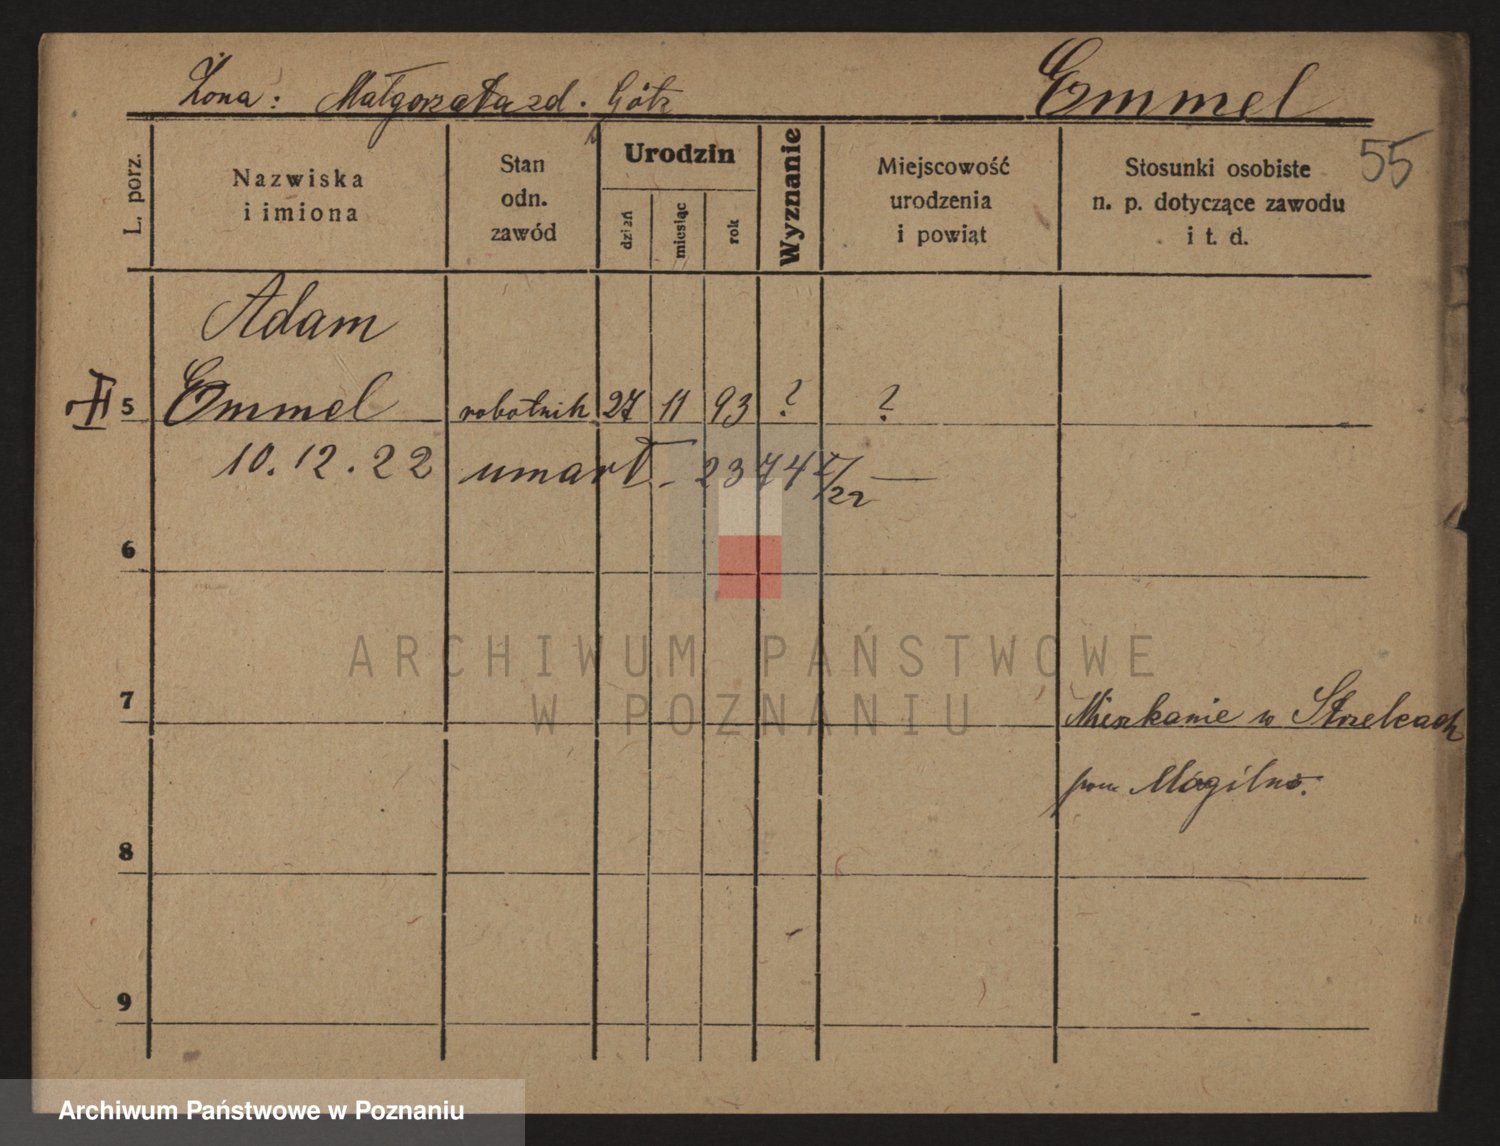 Żona: Małgorzata zd. Götz
Emmel
55
L. porz.
Nazwiska
i imiona
Stan
odn.
zawód
Urodzin
dzień
miesiąc
rok
Wyznanie
Miejscowość
urodzenia
i powiąt
Stosunki osobiste
n. p. dotyczące zawodu
i t. d.
Adam
II 5 Emmel robotnik 27 11 93 ? ?
10.12.22 umarł - 2374
6
ARCHIWUM PAŃSTWOWE
W POZNANIU
7 Mieszkanie w Strzelcach
pow. Mogilno.
8
9
Archiwum Państwowe w Poznaniu